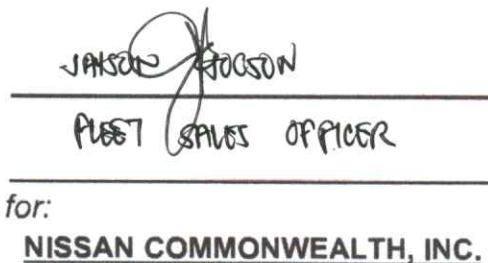 JAYSON JOCSON
FLEET SALES OFFICER
for:
NISSAN COMMONWEALTH, INC.